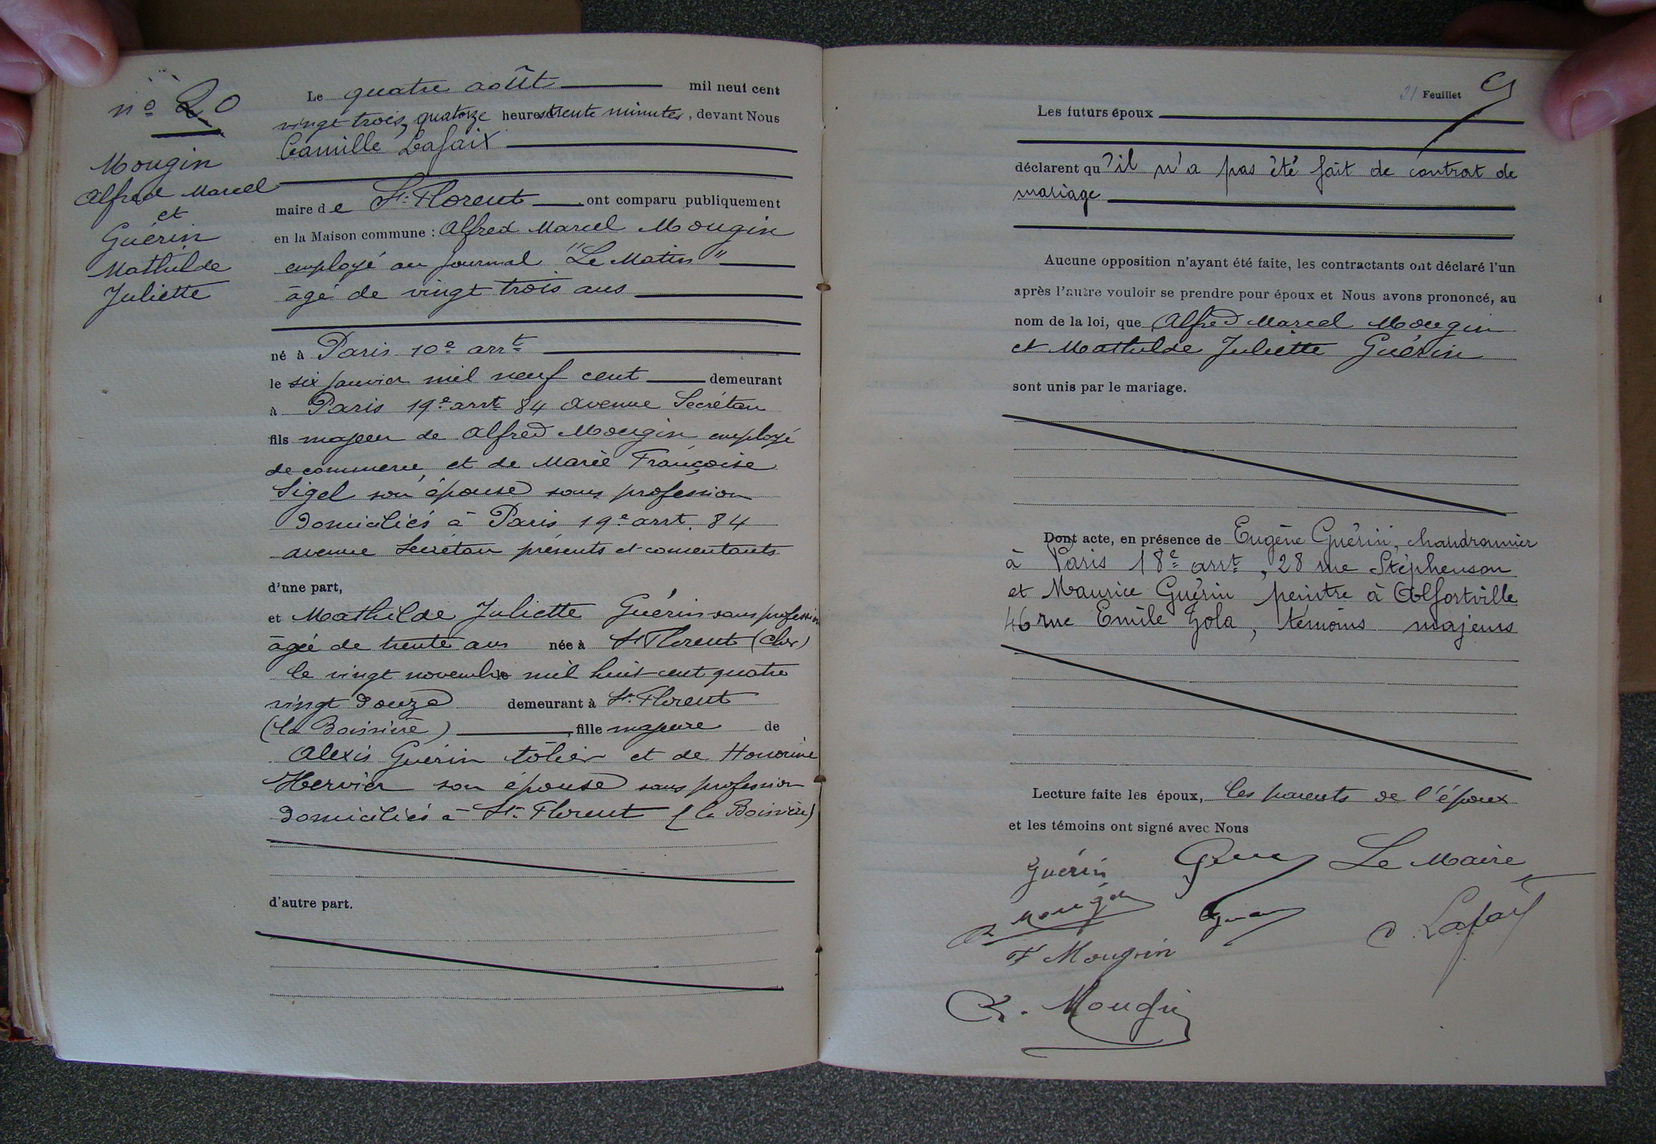 n° 20
Mougin
Alfred Marcel
et
Guérin
Mathilde
Juliette
Le quatre août mil neuf cent
vingt trois, quatorze heures trente minutes, devant Nous
Camille Lafaix
maire de St. Florent ont comparu publiquement
en la Maison commune : Alfred Marcel Mougin
employé au journal "Le Matin"
âgé de vingt trois ans
né à Paris 10e arrt
le six janvier mil neuf cent demeurant
à Paris 19e arrt 84 avenue Secrétan
fils majeur de Alfred Mougin employé
de commerce, et de Marie Françoise
Sigel son épouse sans profession
domiciliés à Paris 19e arrt. 84
avenue Secrétan présents et consentants
d'une part,
et Mathilde Juliette Guérin sans profession
âgée de trente ans née à St Florent (Cher)
le vingt novembre mil huit cent quatre
vingt douze demeurant à St. Florent
(la Boissière) , fille majeure de
Alexis Guérin tôlier et de Honorine
Hervier son épouse sans profession
domiciliés à St. Florent (la Boissière)
d'autre part.
21 Feuillet 9
Les futurs époux
déclarent qu'il n'a pas été fait de contrat de
mariage
Aucune opposition n'ayant été faite, les contractants ont déclaré l'un
après l'autre vouloir se prendre pour époux et Nous avons prononcé, au
nom de la loi, que Alfred Marcel Mougin
et Mathilde Juliette Guérin
sont unis par le mariage.
Dont acte, en présence de Eugène Guérin, chaudronnier
à Paris 18e arrt, 28 rue Stéphenson
et Maurice Guérin peintre à Alfortville
46 rue Emile Zola, témoins majeurs
Lecture faite les époux, les parents de l'époux
et les témoins ont signé avec Nous
Guérin Le Maire
Mougin
C. Lafaix
F Mougin
A. Mougin